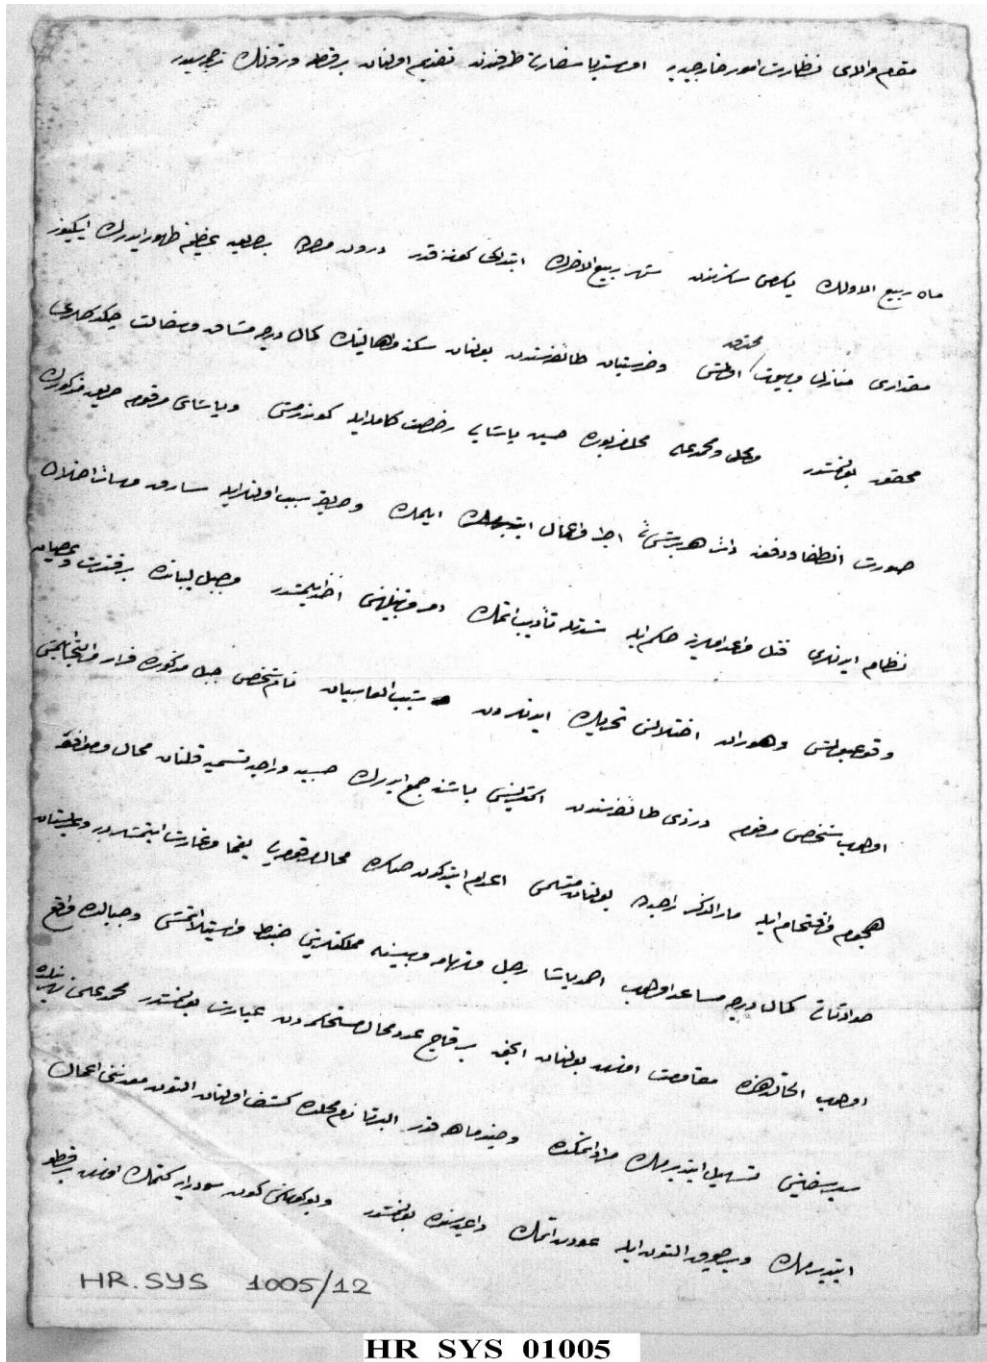 مقام والای نظارت امور خارجیه یه اوستریا سفارت طرفندن تقدیم اولنان بر قطعه ورقه‌نك ترجمه سیدر
ماه ربیع الاولك یكرمی سكزندن شهر ربیع الاخرك ابتداكی كوننه قدر درون مصرده بر حریق عظیم ظهور ایدرك ایكیوز
مقداری منازل و بیوت محترق اولمش و خرستیان طائفه سندن بولنان سكنه و اهالینك كمال درجه مشاق و سفالت چكدكلری
محقق بولنمشدر محمد علی محل مزبوره حسین پاشایی رخصت كامله ایله كوندرمش و پاشای مرقوم حریق مذكورك
صورت انطفا و دفعنه دائر هر بر شیئی اجرا و اعمال ایتدیرمك ایلمك و حریقه سبب اولنلر ایله سارق و سائر اخلال
نظام ایدنلری قتل و اعدام حكم ایله شدتله تأدیب اتمك امر و تنبیهنی اخذ ایلمشدر جبل لبنانده بر فترت و عصیان
وقوعبولمش و هوران اختلالنی تحریك ایدنلردن شبیب العاسیان نام شخص جبل مذكوره فرار و التجا ایتمش
اولوب شخص مرقوم درزی طائفه سندن اكثریسنی باشنه جمع ایدرك حسبیه و راجیه تسمیه قلنان محال و مواقعه
هجوم و اقتحام ایله مار الذكر راجیه ده بولنان متسلمی اعدام ایتدكدن صكره محال مرقومه یی یغما و غارت ایتمشلردر و عربستان
حوادثاتی كمال درجه مساعد اولوب احمد پاشا رجیل و تهامه و بیشه مملكتلرینی ضبط و استیلا اتمش و جبالده واقع
اولوب الحالة هذه مقاومت اوزره بولنان انجق بر قاچ عدد محال مستحكمه دن عبارت بولنمشدر محمد علی نهر نیلك
سیر سفاینی تسهیل ایتدیرمك مراد اتمكده و چند ماهه قدر محلده كشف اولنان التون معدننی اعمال
ایتدیرمك و بر چوق التون ایله عودت اتمك داعیه سنده بولنمشدر و بوكونكی كون سودانه كتمك اوزره بر قطعه
HR.SYS 1005/12
HR SYS 01005